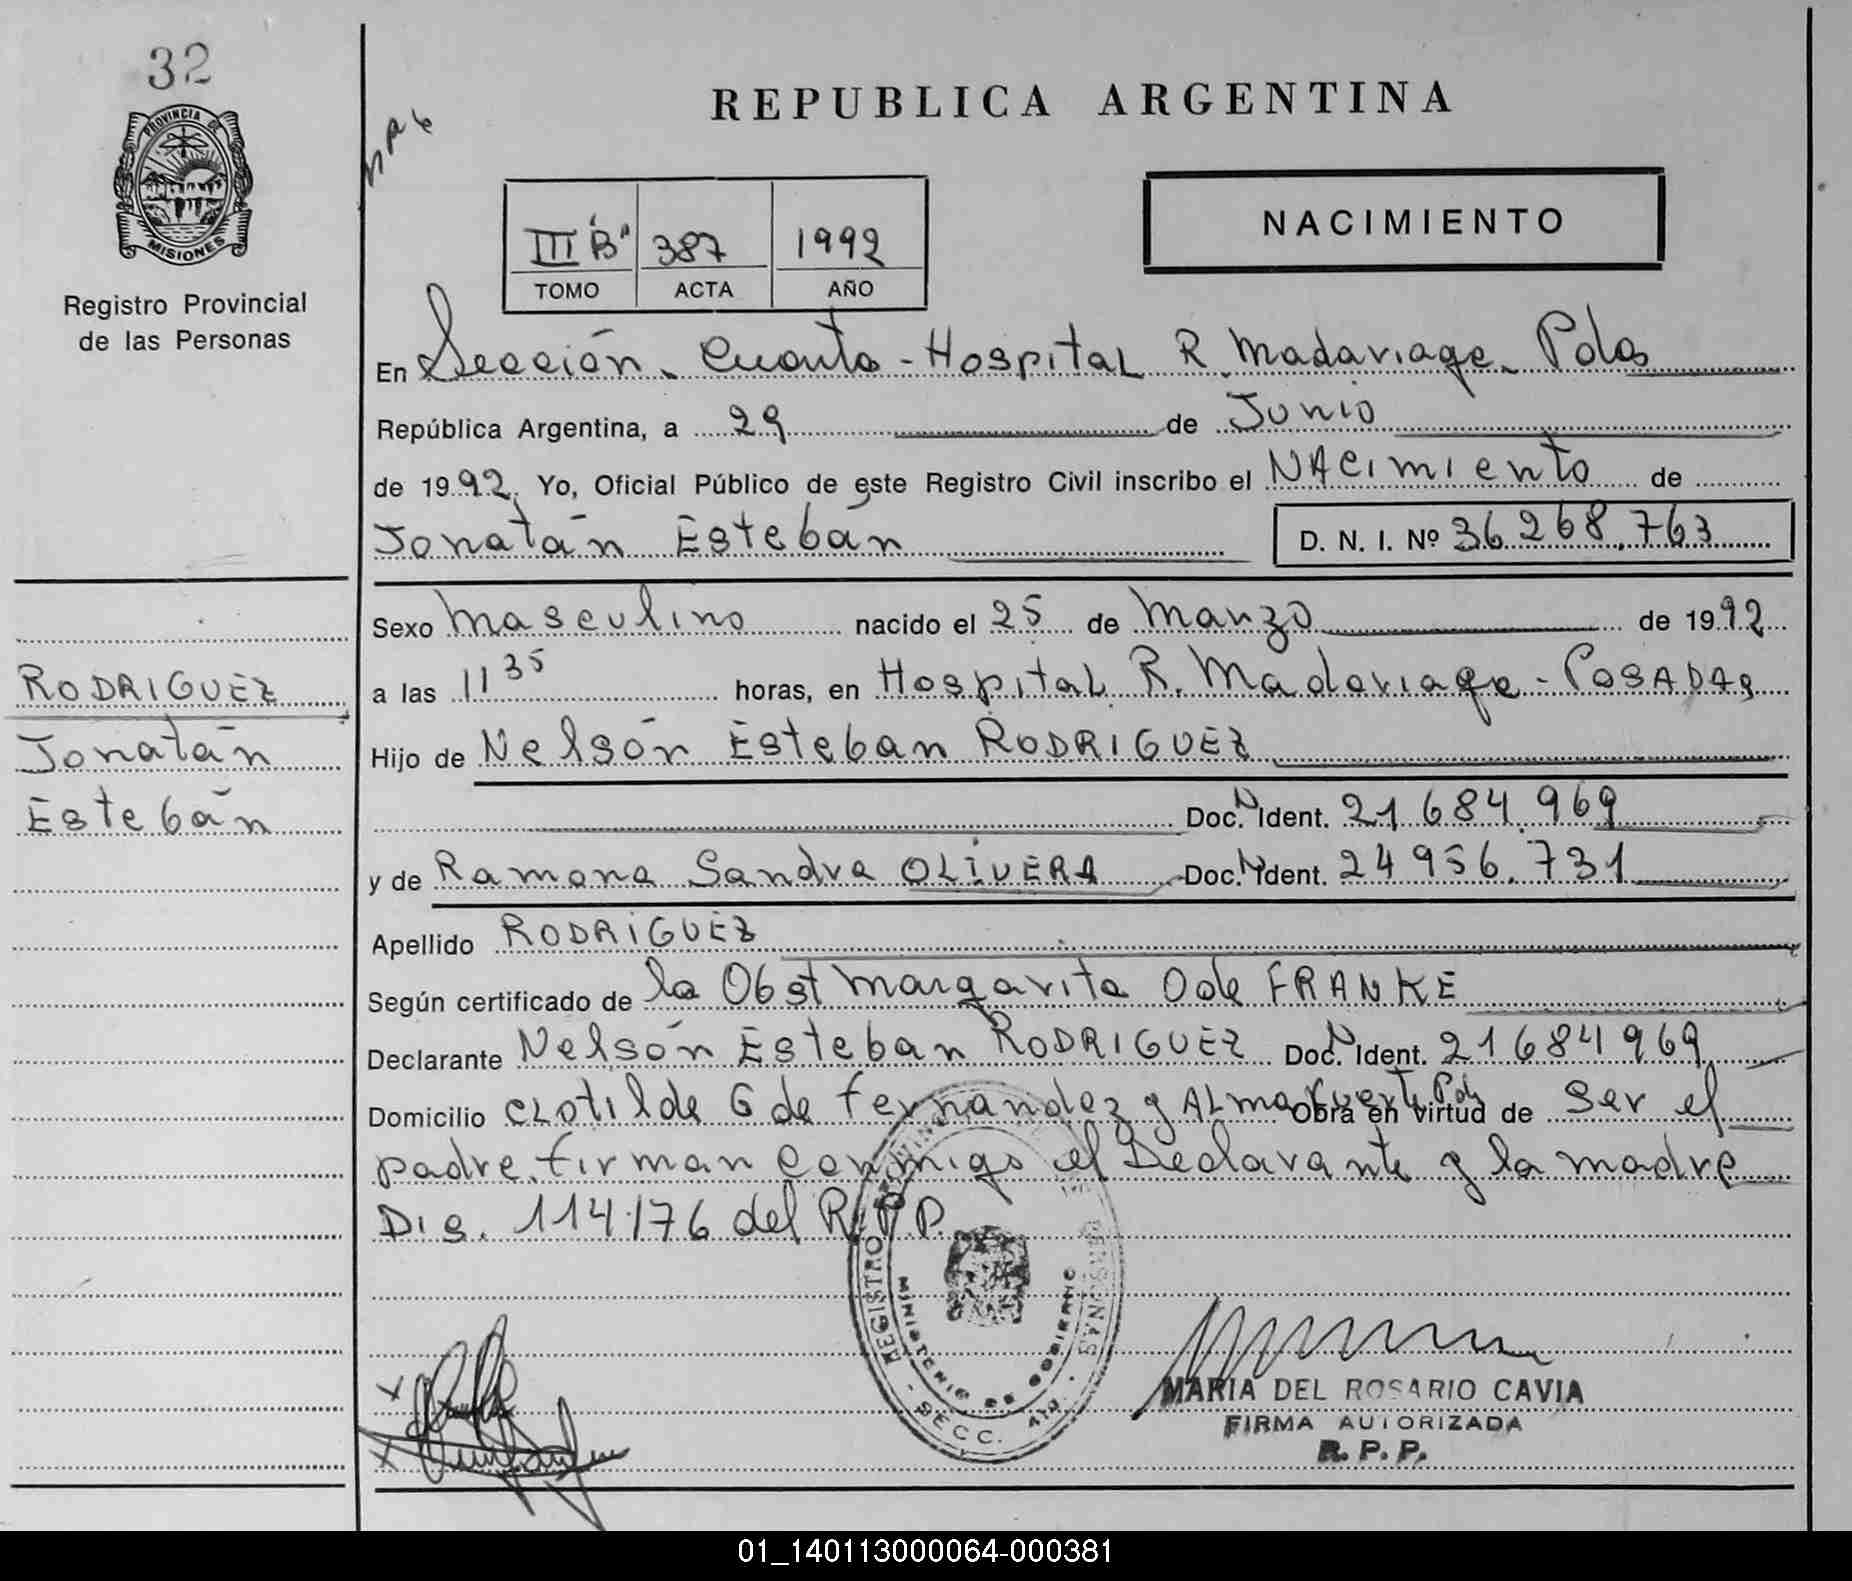 32
PROVINCIA DE
MISIONES
Registro Provincial
de las Personas
REPUBLICA ARGENTINA
III "B" 387 1992
TOMO ACTA AÑO
NACIMIENTO
En Sección Cuarta - Hospital R. Madariaga. Pdas
República Argentina, a 29 de Junio
de 1992. Yo, Oficial Público de este Registro Civil inscribo el NAcimiento de
Jonatán Estebán D. N. I. Nº 36.268.763
Sexo masculino nacido el 25 de Marzo de 1992
a las 11 35 horas, en Hospital R. Madariaga - POSADAS
Hijo de Nelsón Esteban RODRIGUEZ
Doc. N Ident. 21.684.969
y de Ramona Sandra OLIVERA Doc. N Ident. 24.956.731
Apellido RODRIGUEZ
Según certificado de la Obst Margarita O de FRANKE
Declarante Nelsón Esteban RODRIGUEZ Doc. N Ident. 21684969
Domicilio CLotilde G de Fernandez y ALmafuerte Pds Obra en virtud de ser el
padre. firman conmigo el Declarante y la madre
Dis. 114/76 del R.P.P.
RODRIGUEZ
Jonatán
Estebán
REGISTRO PROVINCIAL PERSONAS
MINISTERIO DE GOBIERNO
SECC. 4ta.
MARIA DEL ROSARIO CAVIA
FIRMA AUTORIZADA
R. P. P.
01_140113000064-000381